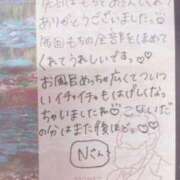 ありがとうございました。♡
今回ももちの全部をほめて
くれてうれしいです。♡
お風呂めっちゃ広くてついつ
いイチャイチャもはげしくなっ
ちゃいましたね♡ こないだ
の分はまた後ほど。♡
Nくん